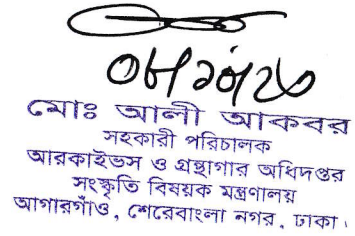 ০৮/১০/২৩
মোঃ আলী আকবর
সহকারী পরিচালক
আরকাইভস ও গ্রন্থাগার অধিদপ্তর
সংস্কৃতি বিষয়ক মন্ত্রণালয়
আগারগাঁও, শেরেবাংলা নগর, ঢাকা।